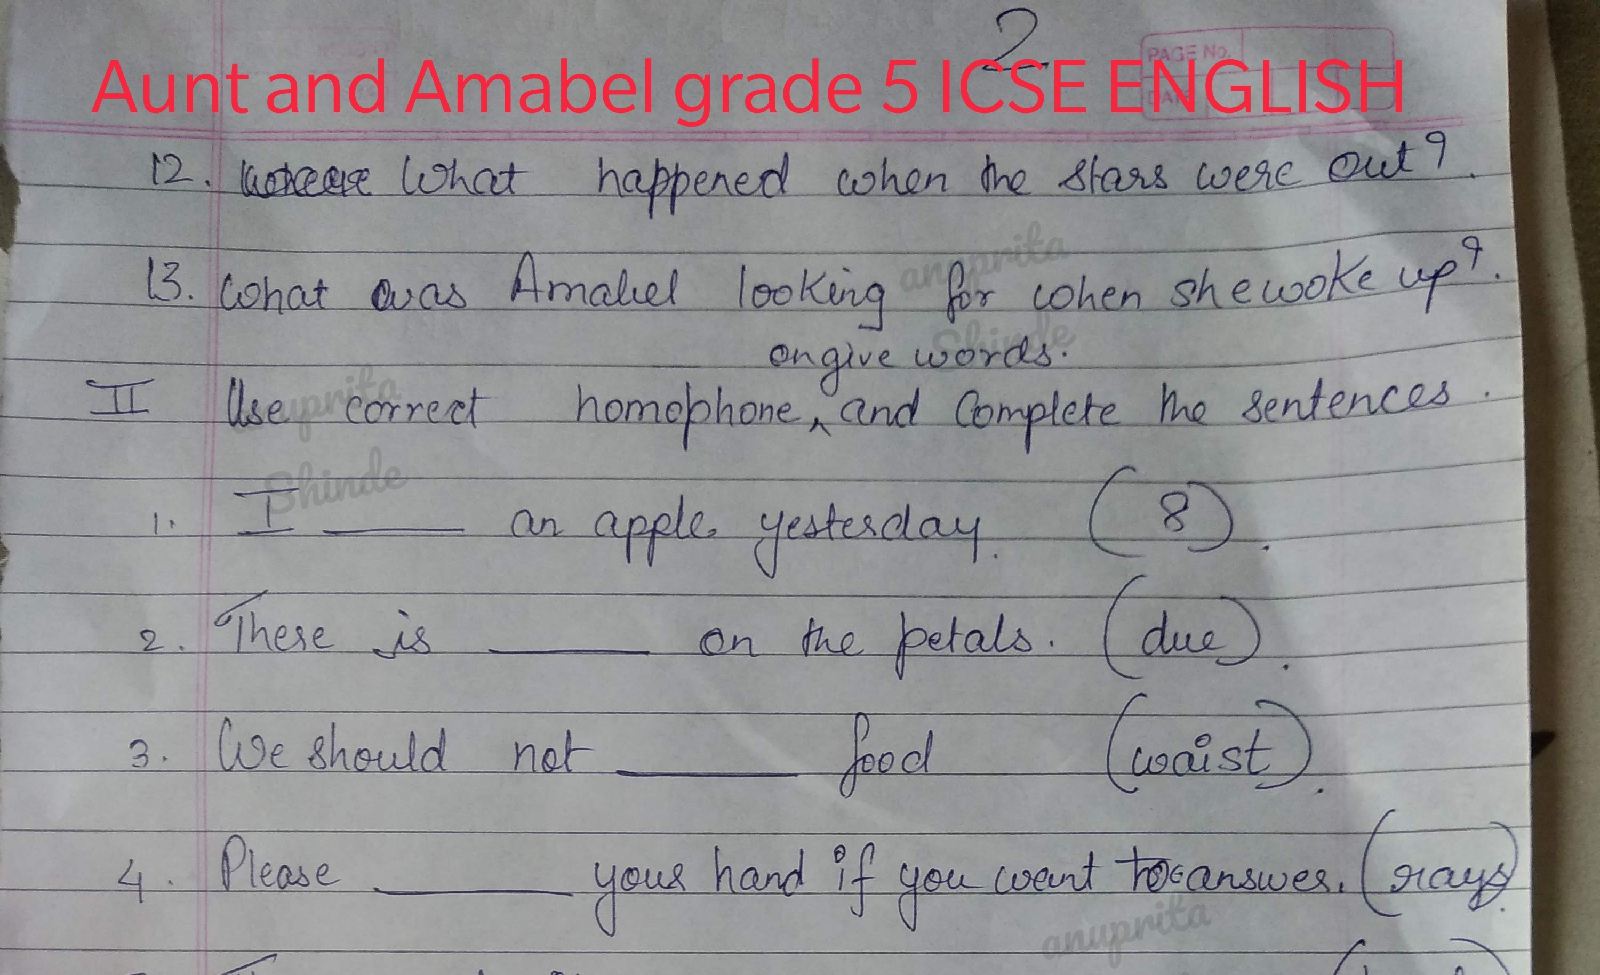 2
PAGE No.
Aunt and Amabel grade 5 ICSE ENGLISH
12. What happened when the stars were out?.
anuprita
Shinde
13. What was Amabel looking for when she woke up?.
on give words.
II Use correct homophone, and Complete the sentences.
anuprita
Shinde
1. I ____ an apple yesterday. (8).
2. There is ____ on the petals. (due).
3. We should not ____ food (waist).
4. Please ____ your hand if you want to answer. (rays).
anuprita